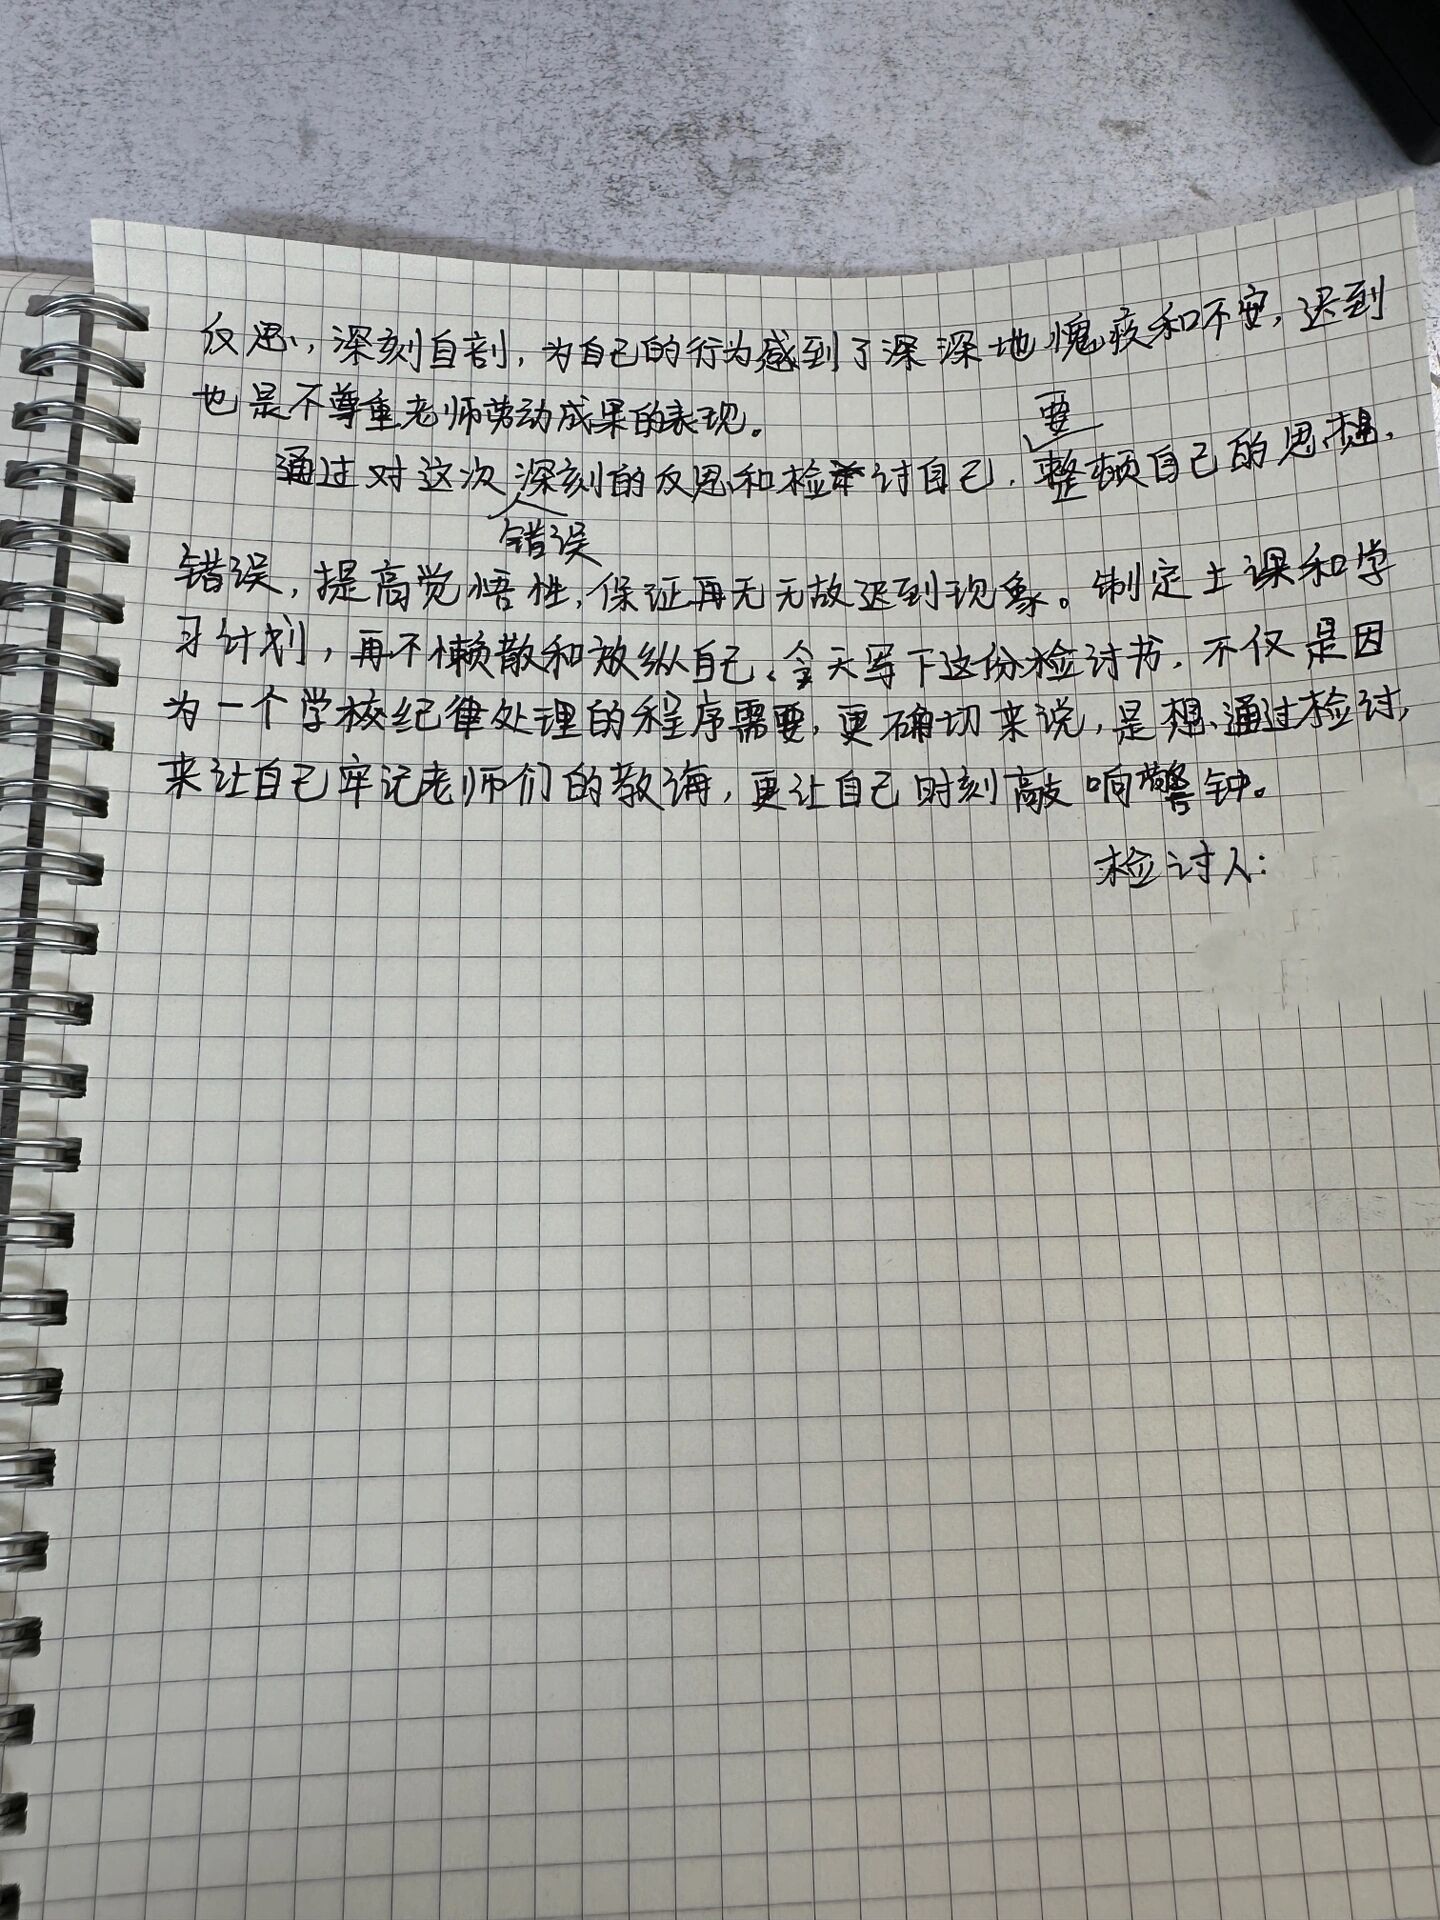 反思，深刻自剖，为自己的行为感到了深深地愧疚和不安，迟到
也是不尊重老师劳动成果的表现。
要
通过对这次深刻的反思和检讨自己，整顿自己的思想，
错误
错误，提高觉悟性，保证再无无故迟到现象。制定上课和学
习计划，再不懒散和放纵自己，今天写下这份检讨书，不仅是因
为一个学校纪律处理的程序需要，更确切来说，是想通过检讨，
来让自己牢记老师们的教诲，更让自己时刻敲响警钟。
检讨人：